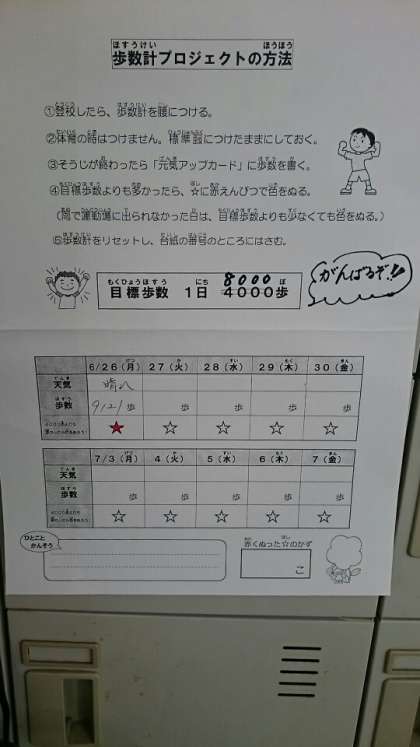 歩数計プロジェクトの方法
①登校したら、歩数計を腰につける。
②体育の時はつけません。標準服につけたままにしておく。
③そうじが終わったら「元気アップカード」に歩数を書く。
④目標歩数よりも多かったら、☆に赤えんぴつで色をぬる。
（雨で運動場に出られなかった日は、目標歩数よりも少なくても色をぬる。）
⑤歩数計をリセットし、台紙の番号のところにはさむ。
目標歩数 1日 8000 4000歩
がんばるぞ!!
6/26(月) 27(火) 28(水) 29(木) 30(金)
天気 晴れ
歩数 9121歩 歩 歩 歩 歩
★ ☆ ☆ ☆ ☆
7/3(月) 4(火) 5(水) 6(木) 7(金)
天気
歩数 歩 歩 歩 歩 歩
☆ ☆ ☆ ☆ ☆
ひとこと
かんそう
赤くぬった☆のかず
こ